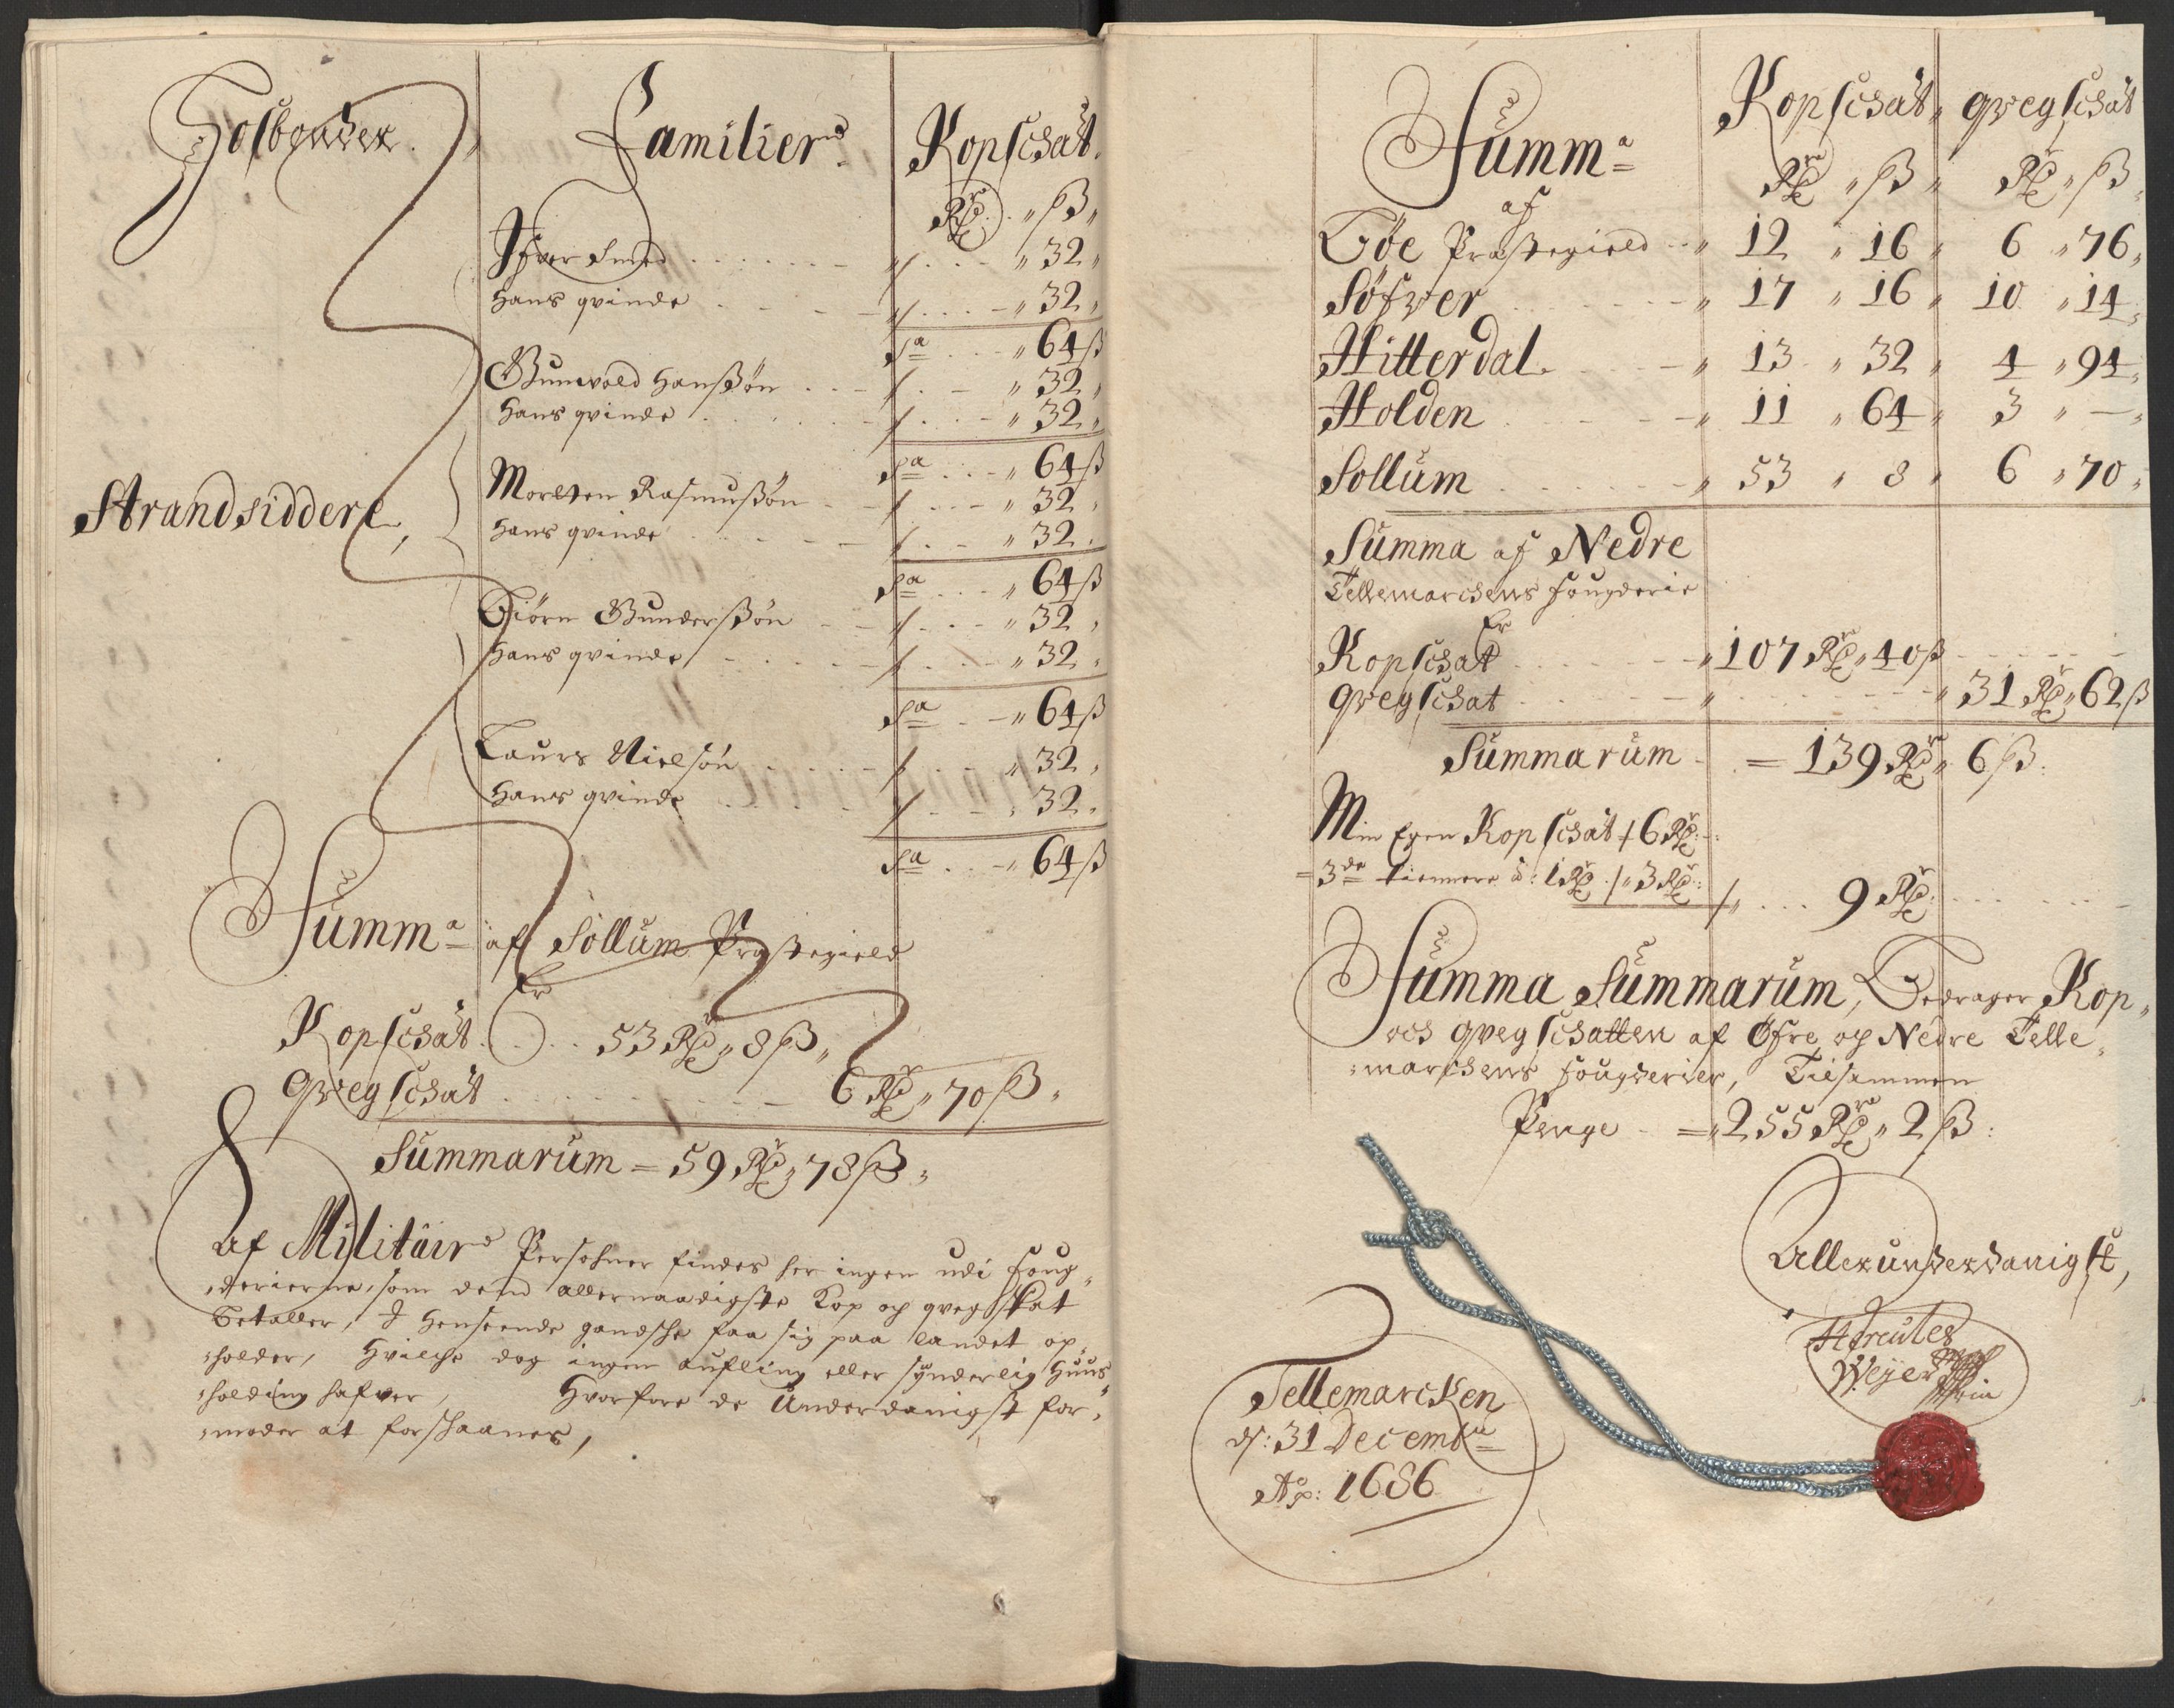 Gosbonder.
Familier
Kopschat.
Rdr ß
Ifver Smed 32
Hans qvinde 32
Sa 64 ß
Gunvold Hanßøn 32
Hans qvinde 32
Sa 64 ß
Strandsiddere,
Morten Rasmusßøn 32
Hans qvinde 32
Sa 64 ß
Biørn Gunderßøn 32
Hans qvinde 32
Sa 64 ß
Laurs Nielsøn 32
Hans qvinde 32
Sa 64 ß
Summa af Sollum Præstegield
Er
Kopschat 53 Rdr 8 ß
Qvegschat 6 Rdr 70 ß
Summarum = 59 Rdr 78 ß
Af Militair Persohner findes her ingen udi foug-
derierne, som dend allernaadigste Kop og qvegskat
betaller, I Henseende gandsche faa sig paa landet op-
holder, Hvilche dog ingen aufling eller synderlig Huus-
holding hafver, Hvorfore de Underdanigst for-
moder at forschaanes,
Summa Kopschat qvegschat
af Rdr ß Rdr ß
Bøe Præstegield 12 16 6 76
Søfver 17 16 10 14
Hitterdal 13 32 4 94
Holden 11 64 3 —
Sollum 53 8 6 70
Summa af Nedre
Tellemarchens fougderie
Er
Kopschat 107 Rdr 40 ß
qvegschat 31 Rdr 62 ß
Summarum = 139 Rdr 6 ß
Min Egen Kopschat / 6 Rdr
3de tiennere à: 1 Rdr / 3 Rdr / 9 Rdr
Summa Summarum, Bedrager Kop-
och qvegschatten af Øfre og Nedre Telle-
marchens fougderier, Tilsammen
Penge = 255 Rdr 2 ß
Allerunderdanigst,
Hercules
Weyer
Tellemarcken
d: 31 Decemb
Ao: 1686